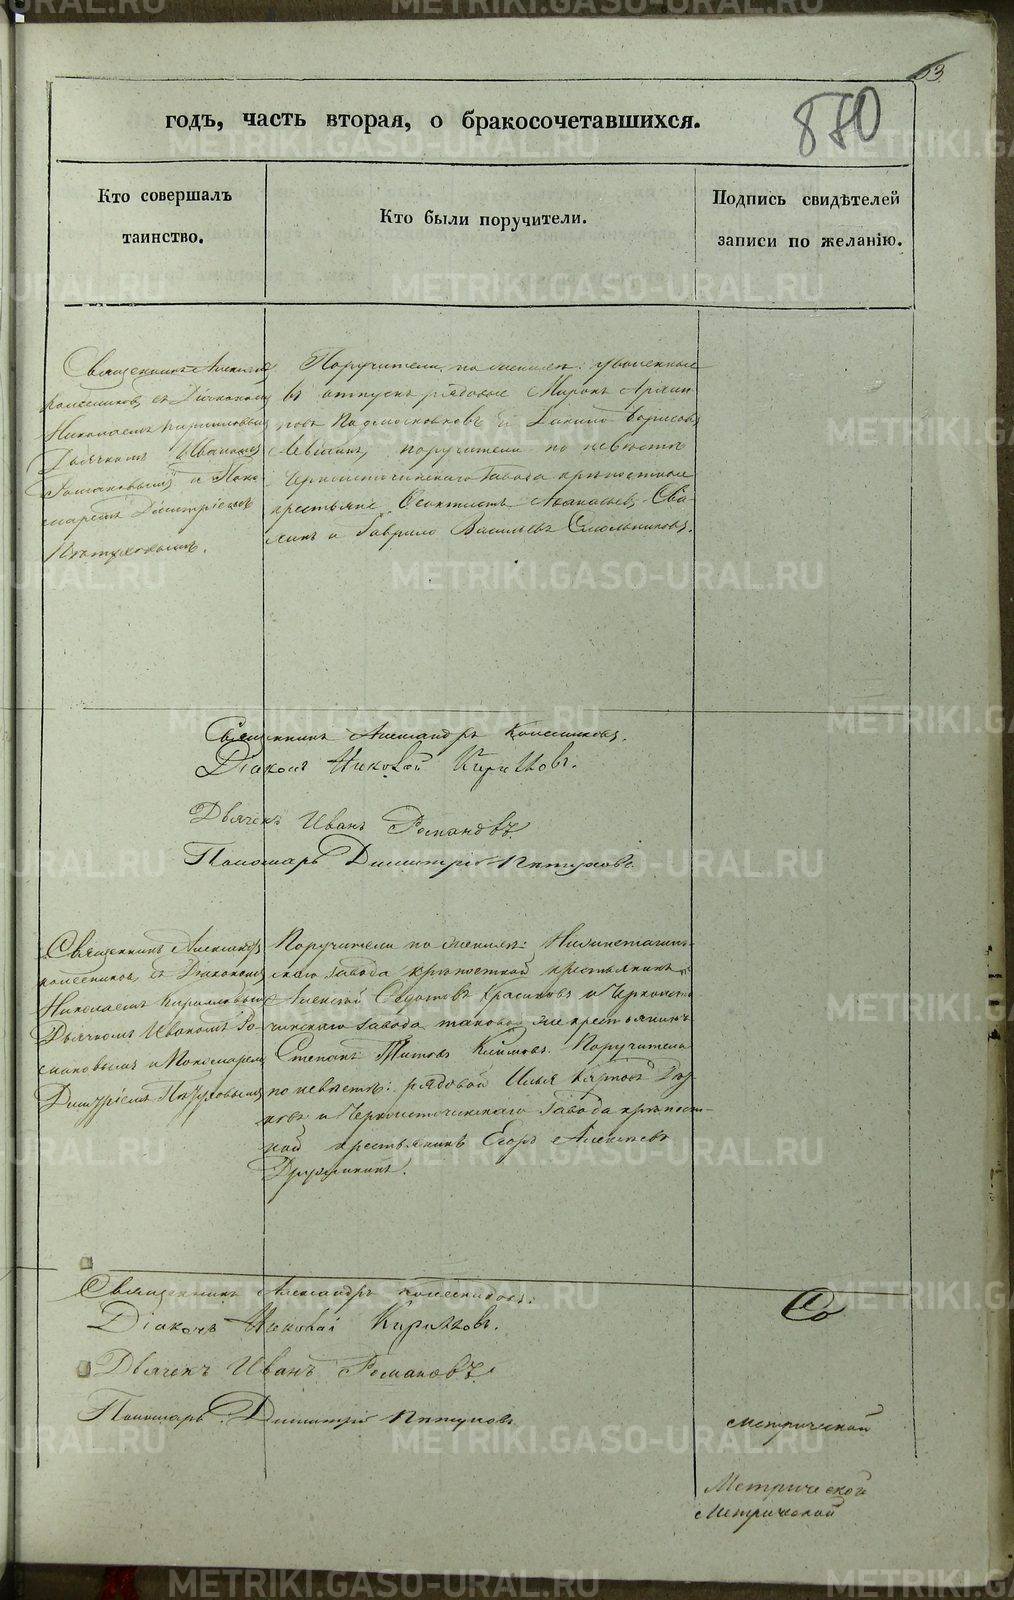 53
880
годъ, часть вторая, о бракосочетавшихся.
Кто совершалъ
таинство.
Кто были поручители.
Подпись свидѣтелей
записи по желанію.
Священникъ Александръ
Колесниковъ съ Діакономъ
Николаемъ Кирилловымъ
Дьячкомъ Иваномъ
Романовымъ и Поно-
маремъ Димитріемъ
Пѣтуховымъ.
Поручители по женихѣ: уволенные
въ отпускъ рядовые Миронъ Архип
повъ и Данило Борисовъ
поручители по невѣстѣ
Черноисточинскаго Завода крѣпостные
крестьяне Ѳеоктистъ Аѳанасьевъ
и Гаврило Васильевъ
Священникъ Александръ Колесниковъ.
Діаконъ Николай Кирилловъ.
Дьячекъ Иванъ Романовъ.
Пономарь Димитрій Пѣтуховъ.
Священникъ Александръ
Колесниковъ, съ Діакономъ
Николаемъ Кирилловымъ
Дьячкомъ Иваномъ Ро-
мановымъ и Пономаремъ
Димитріемъ Пѣтуховымъ
Поручители по женихѣ: Нижнетагиль-
скаго завода крѣпостной крестьянинъ
Алексѣй Ѳедотовъ Красиковъ и Черноисто
чинскаго завода таковой же крестьянинъ
Степанъ Титовъ Климовъ. Поручители
по невѣстѣ: рядовой Илья
и Черноисточинскаго Завода крѣпост-
ной крестьянинъ Егоръ Алексѣевъ
Дружининъ.
Священникъ Александръ Колесниковъ.
Діаконъ Николай Кирилловъ.
Дьячекъ Иванъ Романовъ.
Пономарь Димитрій Пѣтуховъ
метрической
Метрической
Метрической
METRIKI.GASO-URAL.RU